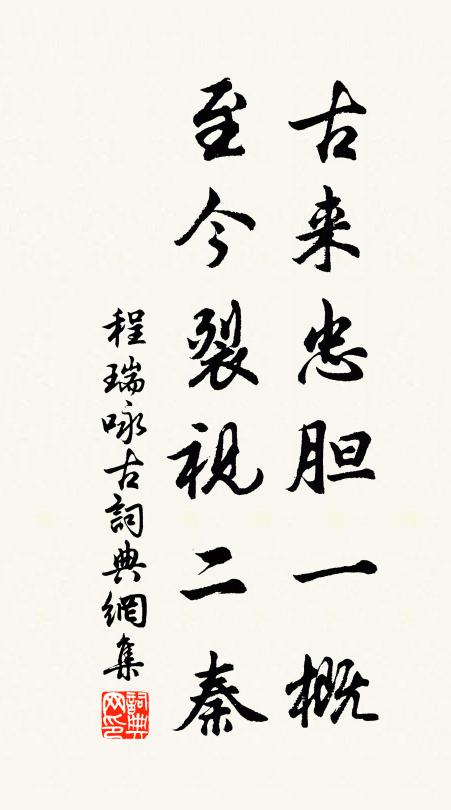 古来忠胆一概
至今裂視二秦
程瑞咏古詞典網集
詞典网印